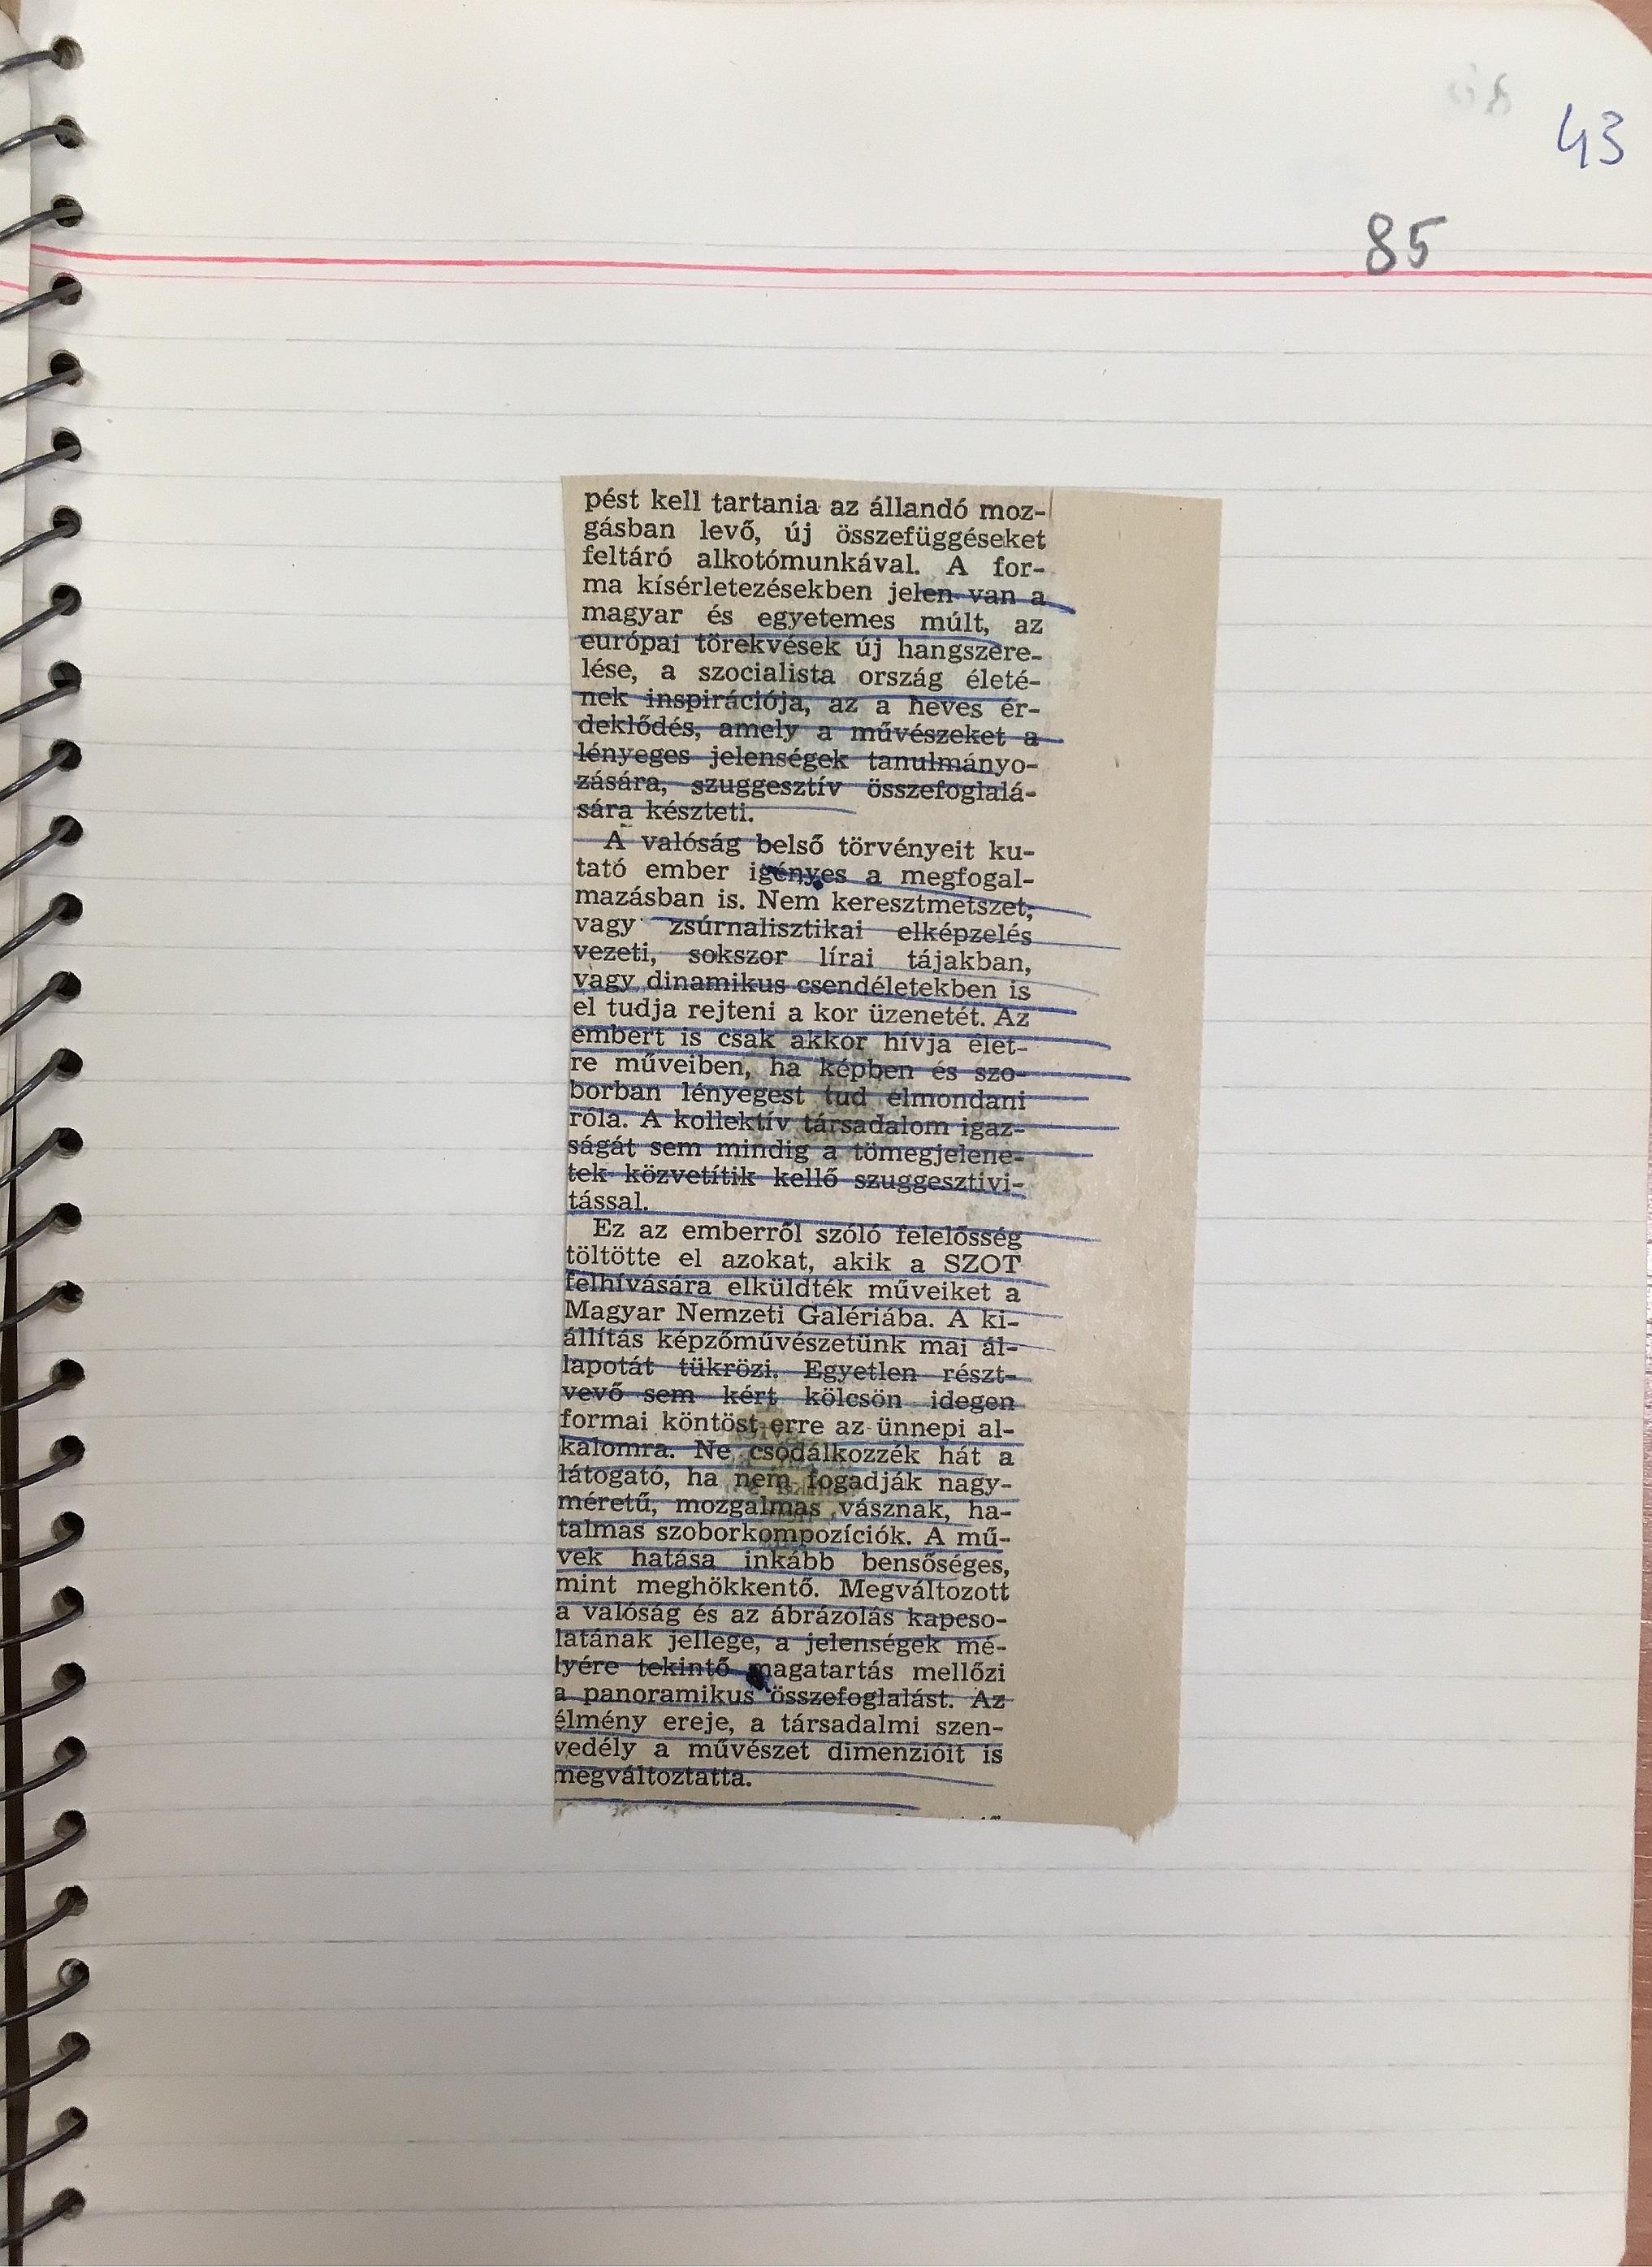 43
85
pést kell tartania az állandó moz-
gásban levő, új összefüggéseket
feltáró alkotómunkával. A for-
ma kísérletezésekben jelen van a
magyar és egyetemes múlt, az
európai törekvések új hangszere-
lése, a szocialista ország életé-
nek inspirációja, az a heves ér-
deklődés, amely a művészeket a
lényeges jelenségek tanulmányo-
zására, szuggesztív összefoglalá-
sára készteti.
A valóság belső törvényeit ku-
tató ember igényes a megfogal-
mazásban is. Nem keresztmetszet,
vagy zsúrnalisztikai elképzelés
vezeti, sokszor lírai tájakban,
vagy dinamikus csendéletekben is
el tudja rejteni a kor üzenetét. Az
embert is csak akkor hívja élet-
re műveiben, ha képben és szo-
borban lényegest tud elmondani
róla. A kollektív társadalom igaz-
ságát sem mindig a tömegjelene-
tek közvetítik kellő szuggesztivi-
tással.
Ez az emberről szóló felelősség
töltötte el azokat, akik a SZOT
felhívására elküldték műveiket a
Magyar Nemzeti Galériába. A ki-
állítás képzőművészetünk mai ál-
lapotát tükrözi. Egyetlen részt-
vevő sem kért kölcsön idegen
formai köntöst erre az ünnepi al-
kalomra. Ne csodálkozzék hát a
látogató, ha nem fogadják nagy-
méretű, mozgalmas vásznak, ha-
talmas szoborkompozíciók. A mű-
vek hatása inkább bensőséges,
mint meghökkentő. Megváltozott
a valóság és az ábrázolás kapcso-
latának jellege, a jelenségek mé-
lyére tekintő magatartás mellőzi
a panoramikus összefoglalást. Az
élmény ereje, a társadalmi szen-
vedély a művészet dimenzióit is
megváltoztatta.